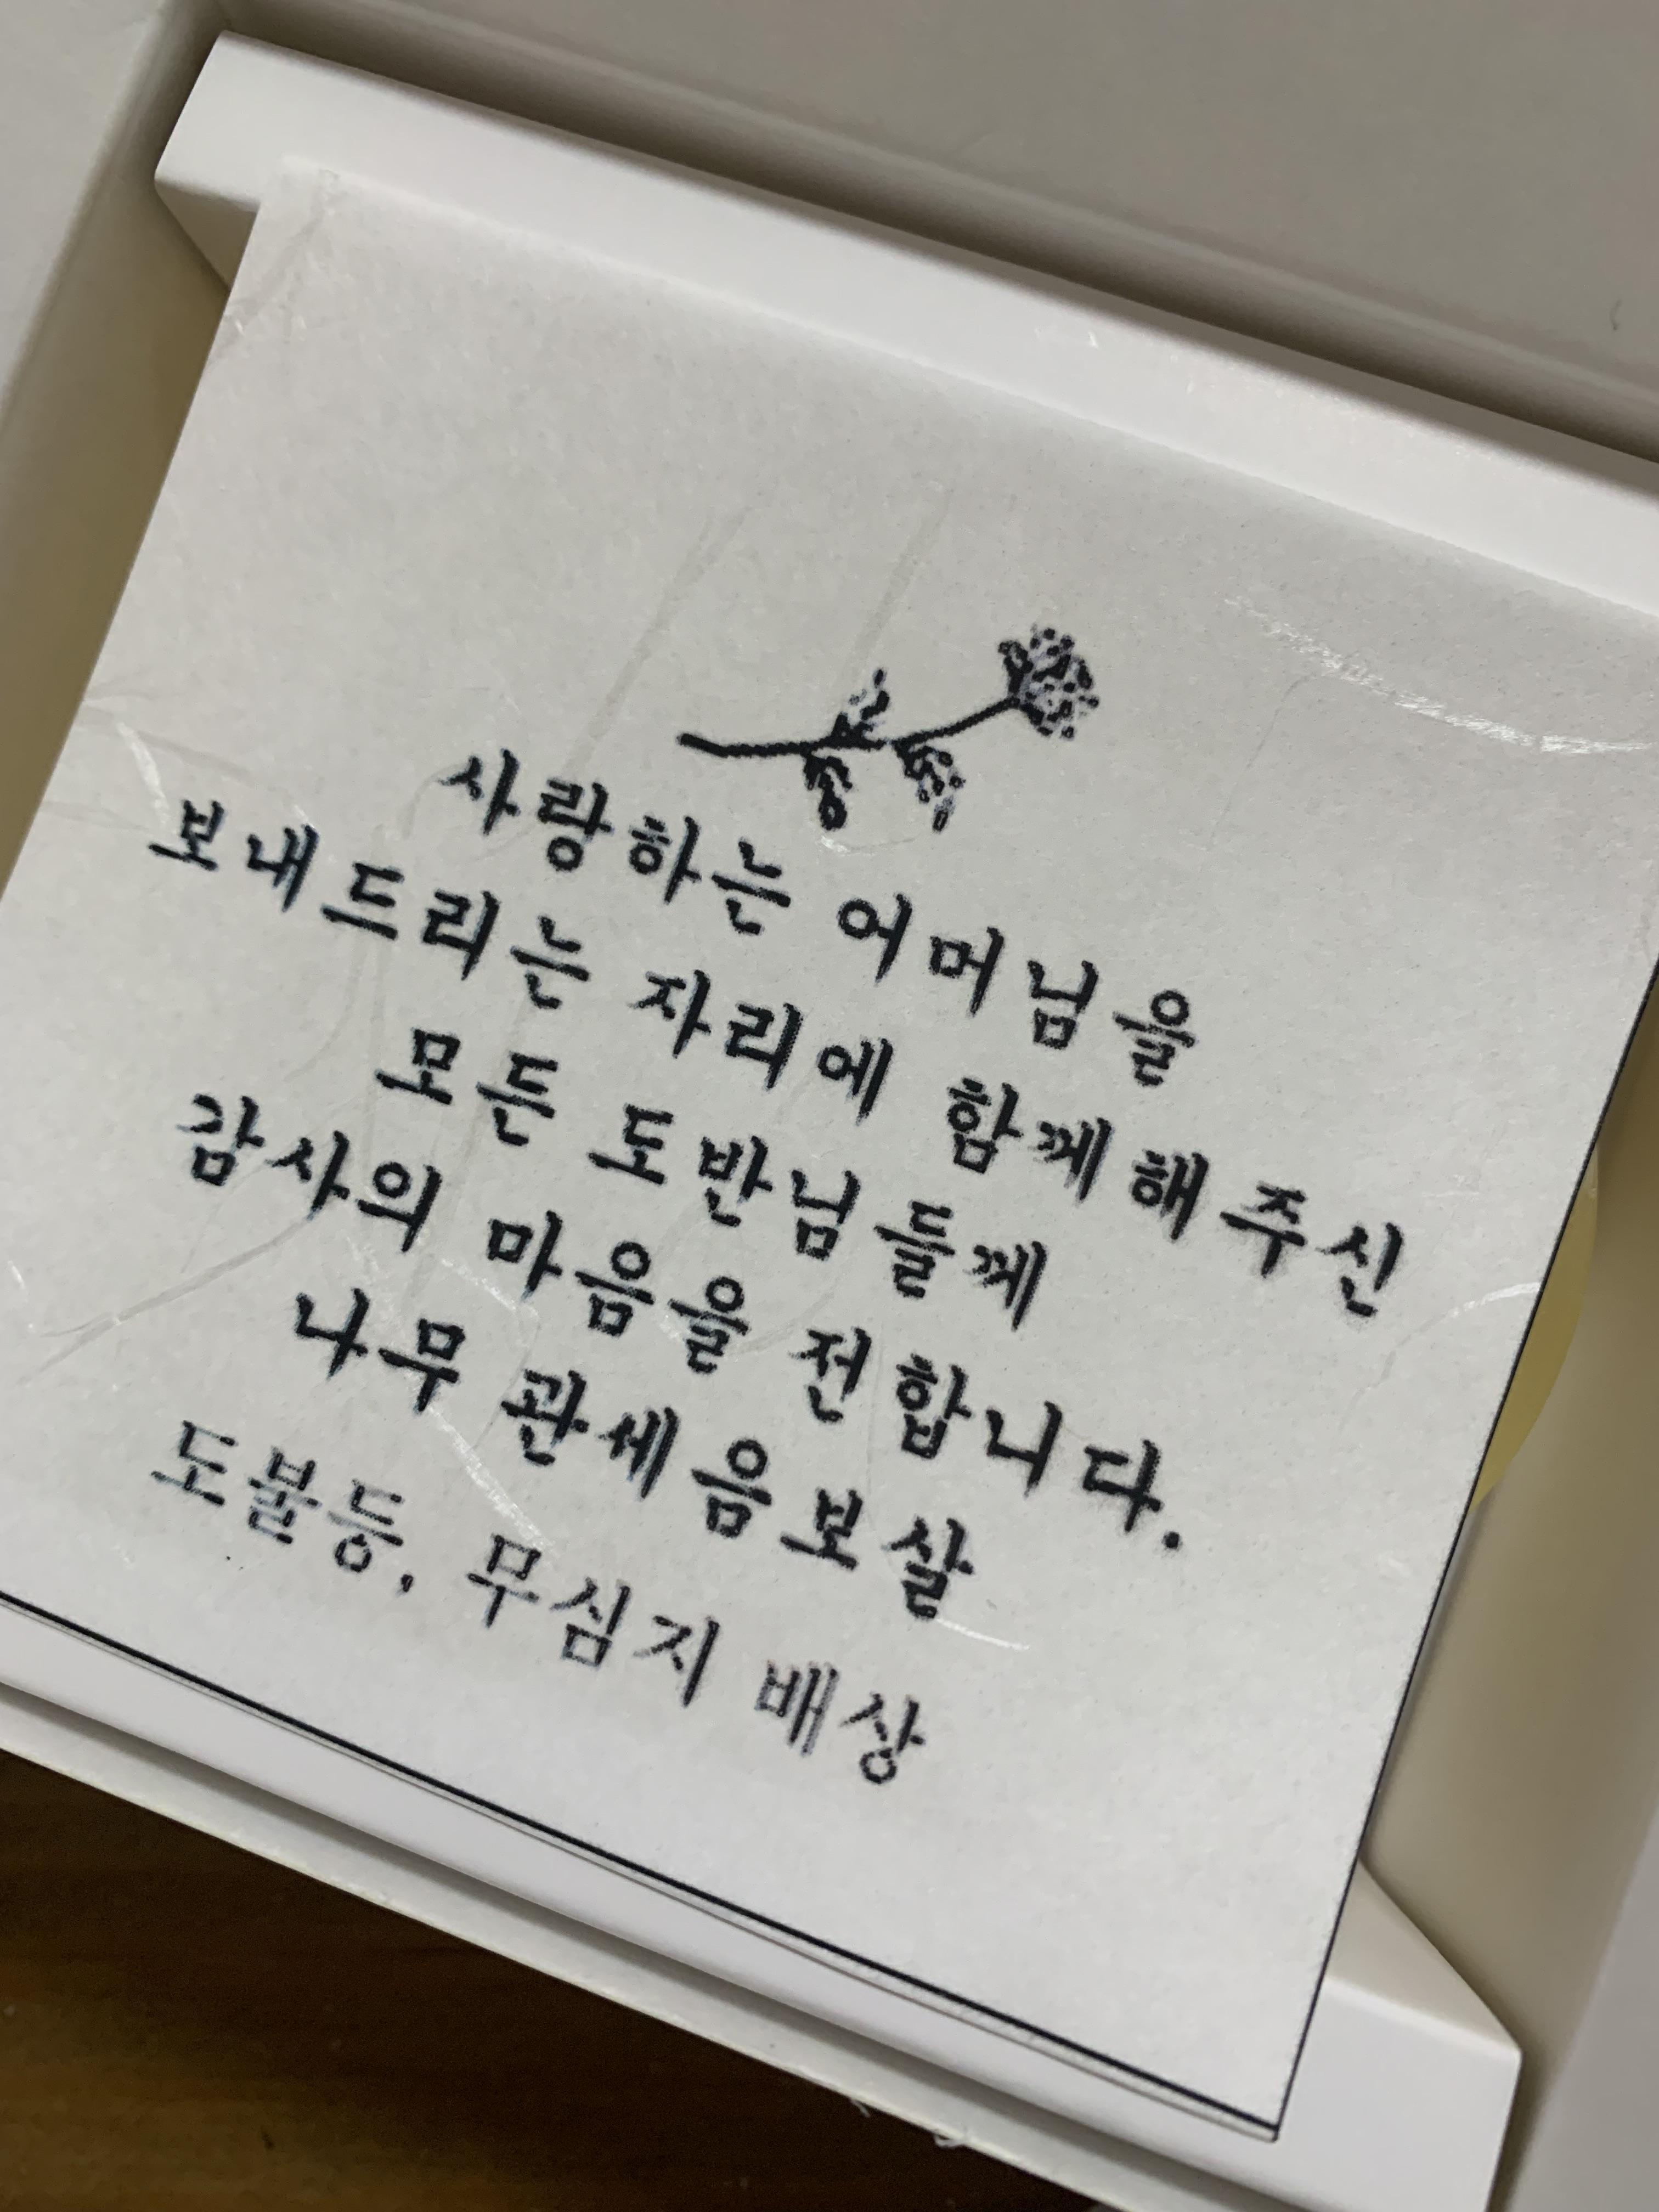 사랑하는 어머님을
보내드리는 자리에 함께해주신
모든 도반님들께
감사의 마음을 전합니다.
나무 관세음보살
도불등, 무심지 배상